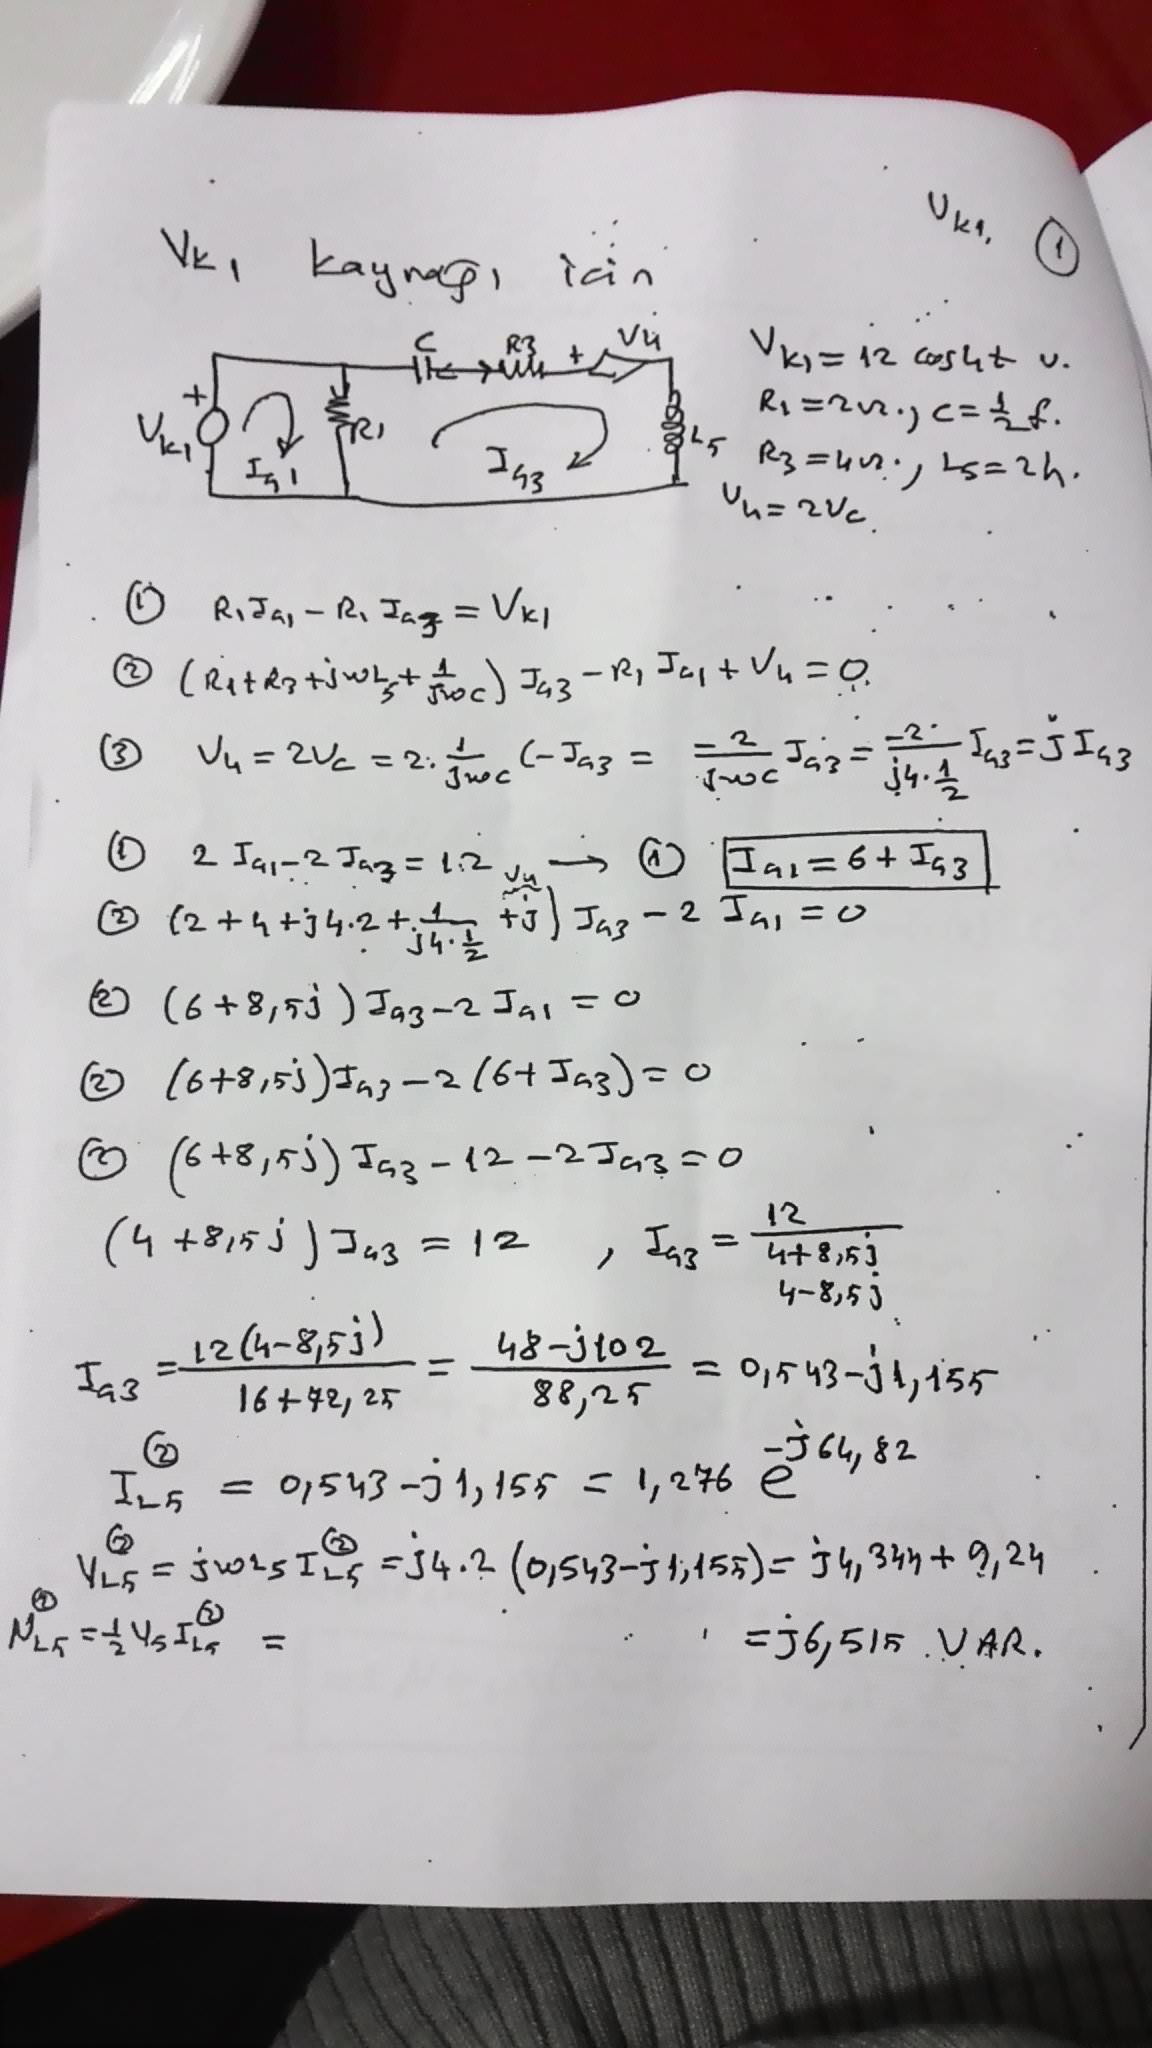 Vk1. ①
Vk1 kaynağı için
C R3 + V4
+ Vk1 Ia1 R1 Ia3 L5
Vk1 = 12 cos4t v.
R1 = 2Ω., C = 1/2 f.
R3 = 4Ω., L5 = 2h.
V4 = 2Vc.
① R1Ia1 - R1 Ia3 = Vk1
② (R1+R3+jωL5+1/jωc) Ia3 - R1 Ia1 + V4 = 0.
③ V4 = 2Vc = 2. 1/jωc (-Ia3 = -2/jωc Ia3 = -2/j4.1/2 Ia3 = j Ia3
① 2 Ia1 - 2 Ia3 = 12 → ① Ia1 = 6 + Ia3
② (2+4+j4.2+1/j4.1/2 +j) Ia3 - 2 Ia1 = 0
V4
② (6+8,5j) Ia3 - 2 Ia1 = 0
② (6+8,5j) Ia3 - 2 (6+Ia3) = 0
② (6+8,5j) Ia3 - 12 - 2 Ia3 = 0
(4+8,5j) Ia3 = 12 , Ia3 = 12/4+8,5j
4-8,5j
Ia3 = 12(4-8,5j)/16+72,25 = 48-j102/88,25 = 0,543-j1,155
IL5② = 0,543-j1,155 = 1,276 e^-j64,82
VL5② = jωL5 IL5② = j4.2 (0,543-j1,155) = j4,344+9,24
NL5② = 1/2 V5 IL5② = = j6,515 VAR.